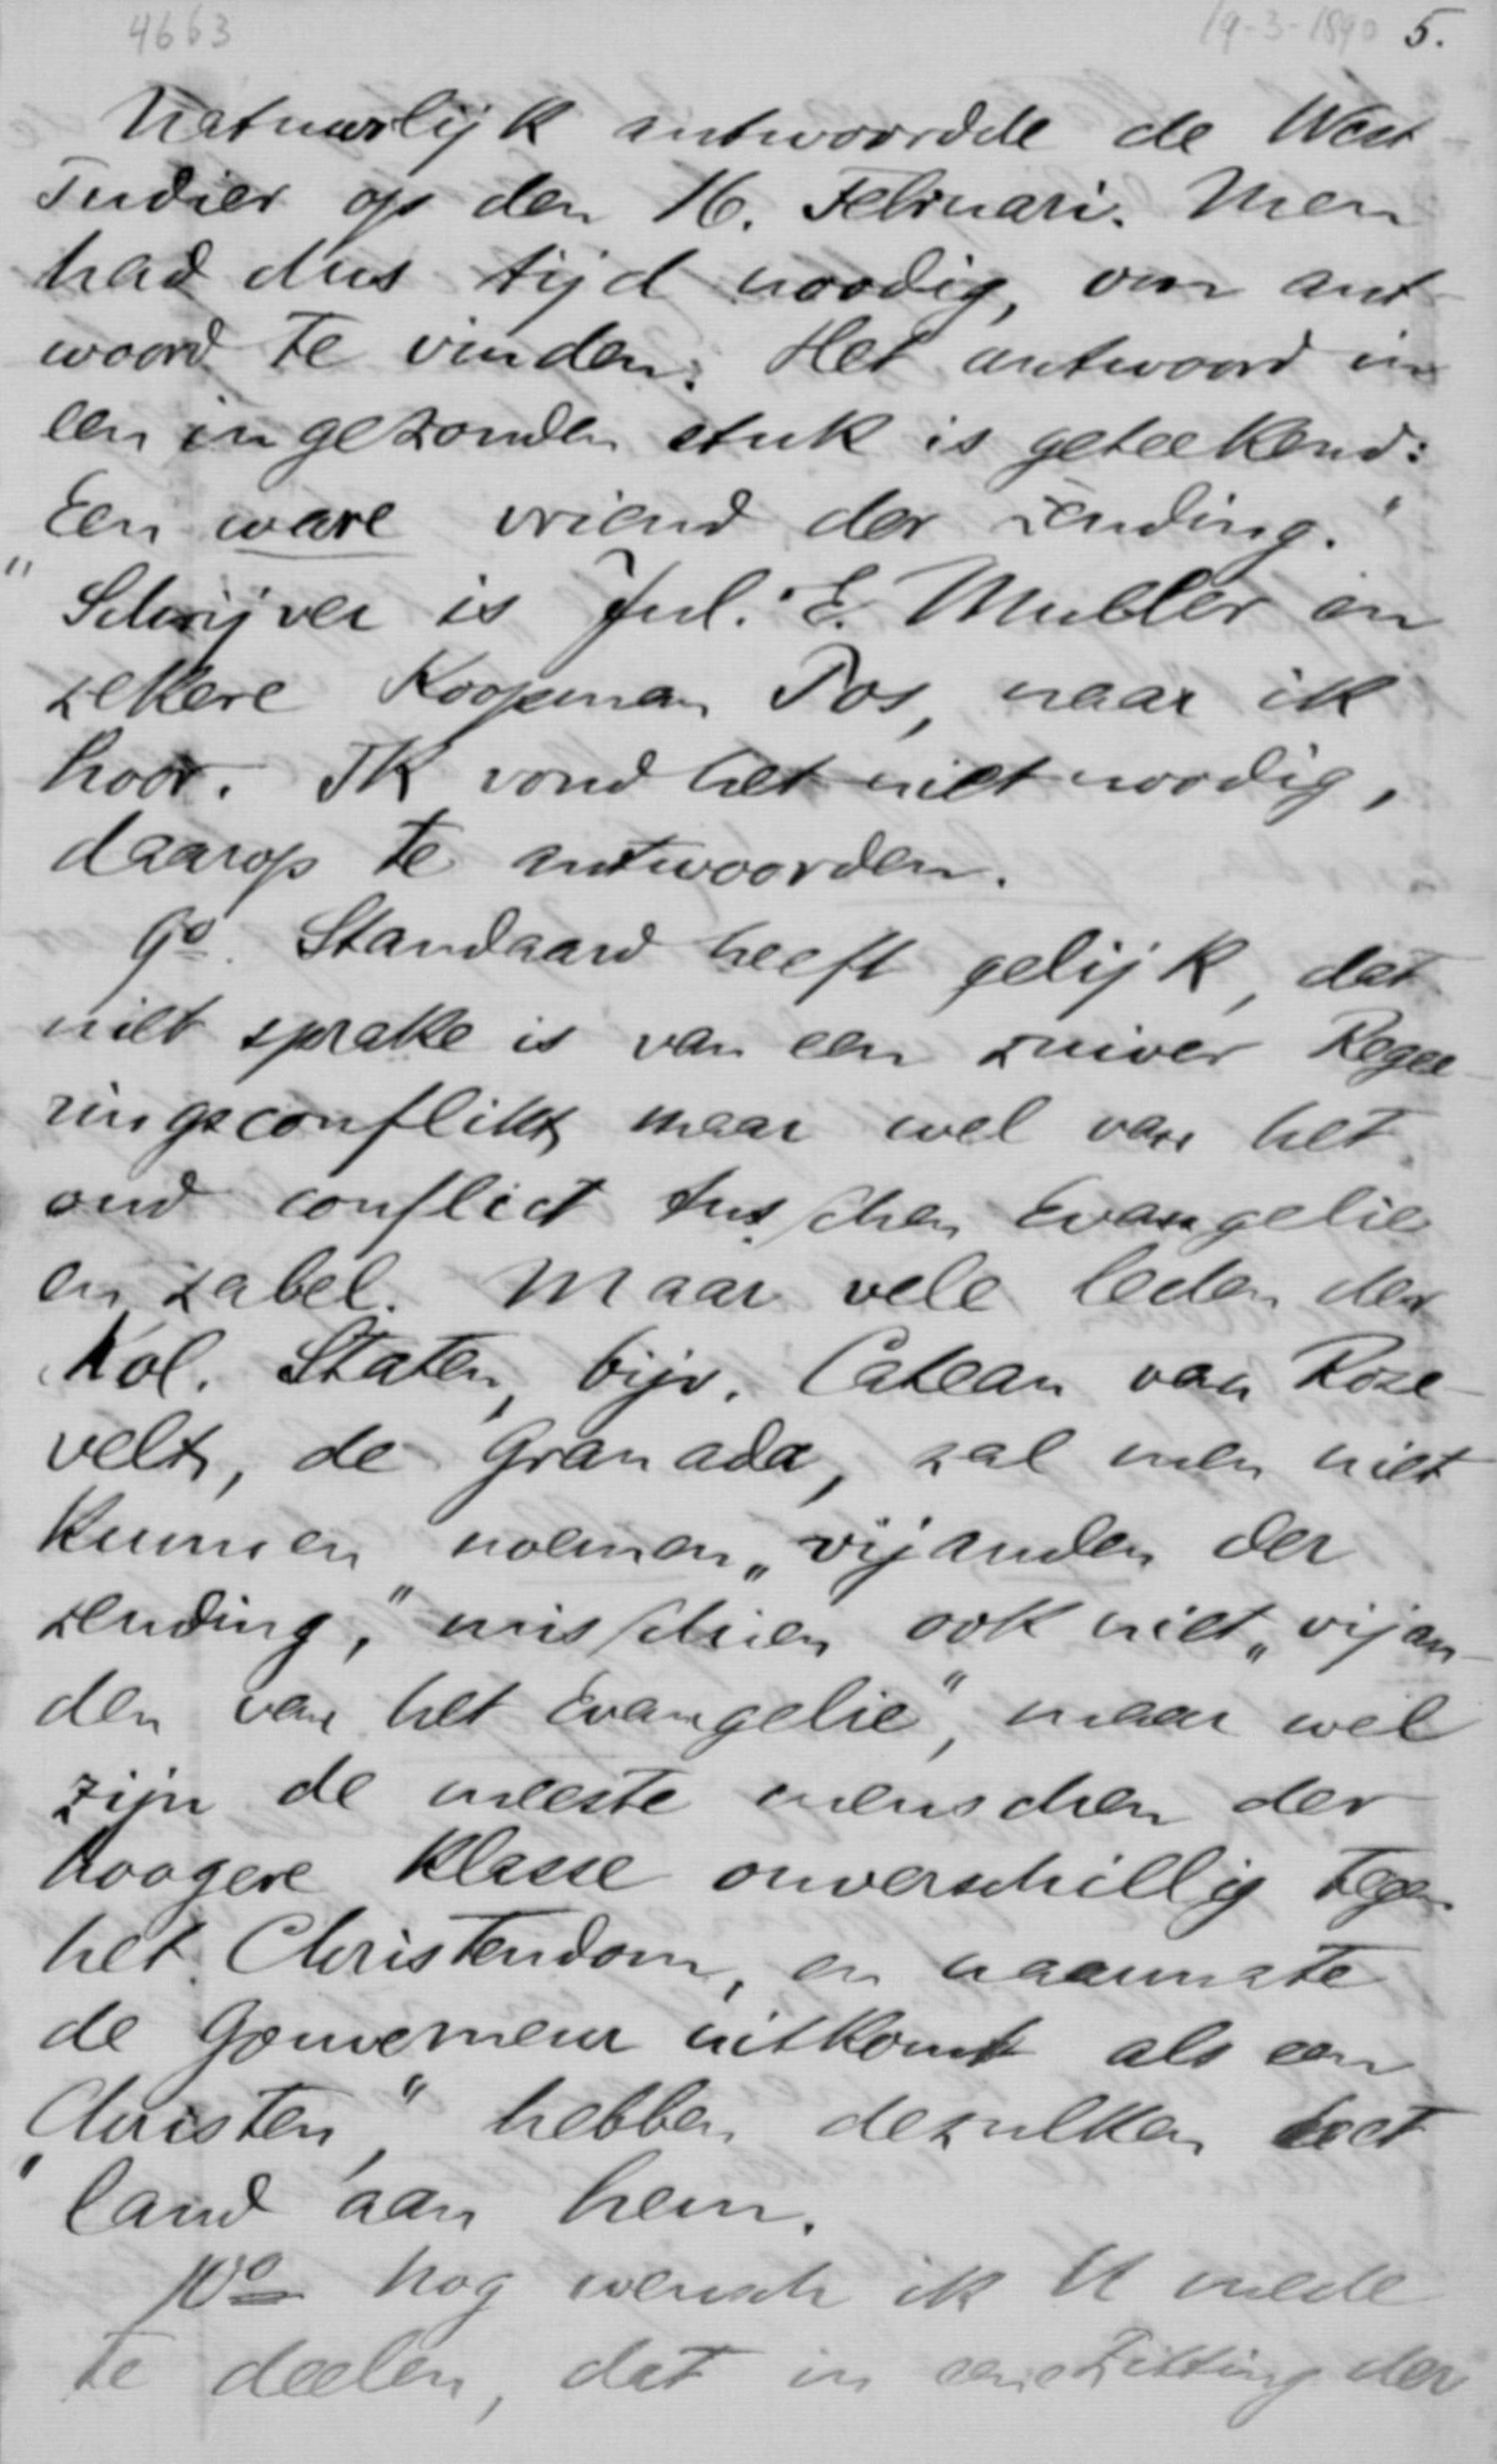 4663 19-3-1890 5.
Natuurlijk antwoordde de West
Indiër op den 16. Februari. Men
had dus tijd noodig, om ant-
woord te vinden. Het antwoord in
een ingezonden stuk is geteekend:
"Een ware vriend der zending."
Schrijver is Jul. E. Muller en
zekere Koopman Pos, naar ik
hoor. Ik vond het niet noodig,
daarop te antwoorden.
9o. Standaard heeft gelijk, dat
niet sprake is van een zuiver Regee-
ringsconflikt, maar wel van het
oud conflict tusschen Evangelie
en zabel. Maar vele leden der
Kol. Staten, bijv. Cateau van Rose-
velt, de Granada, zal men niet
kunnen noemen „vijanden der
zending," misschien ook niet „vijan-
den van het Evangelie", maar wel
zijn de meeste menschen der
hoogere klasse onverschillig tegen
het Christendom, en naarmate
de Gouverneur uitkomt als een
"Christen," hebben dezulken het
land aan hem.
10o Nog wensch ik U mede
te deelen, dat in eene Zitting der